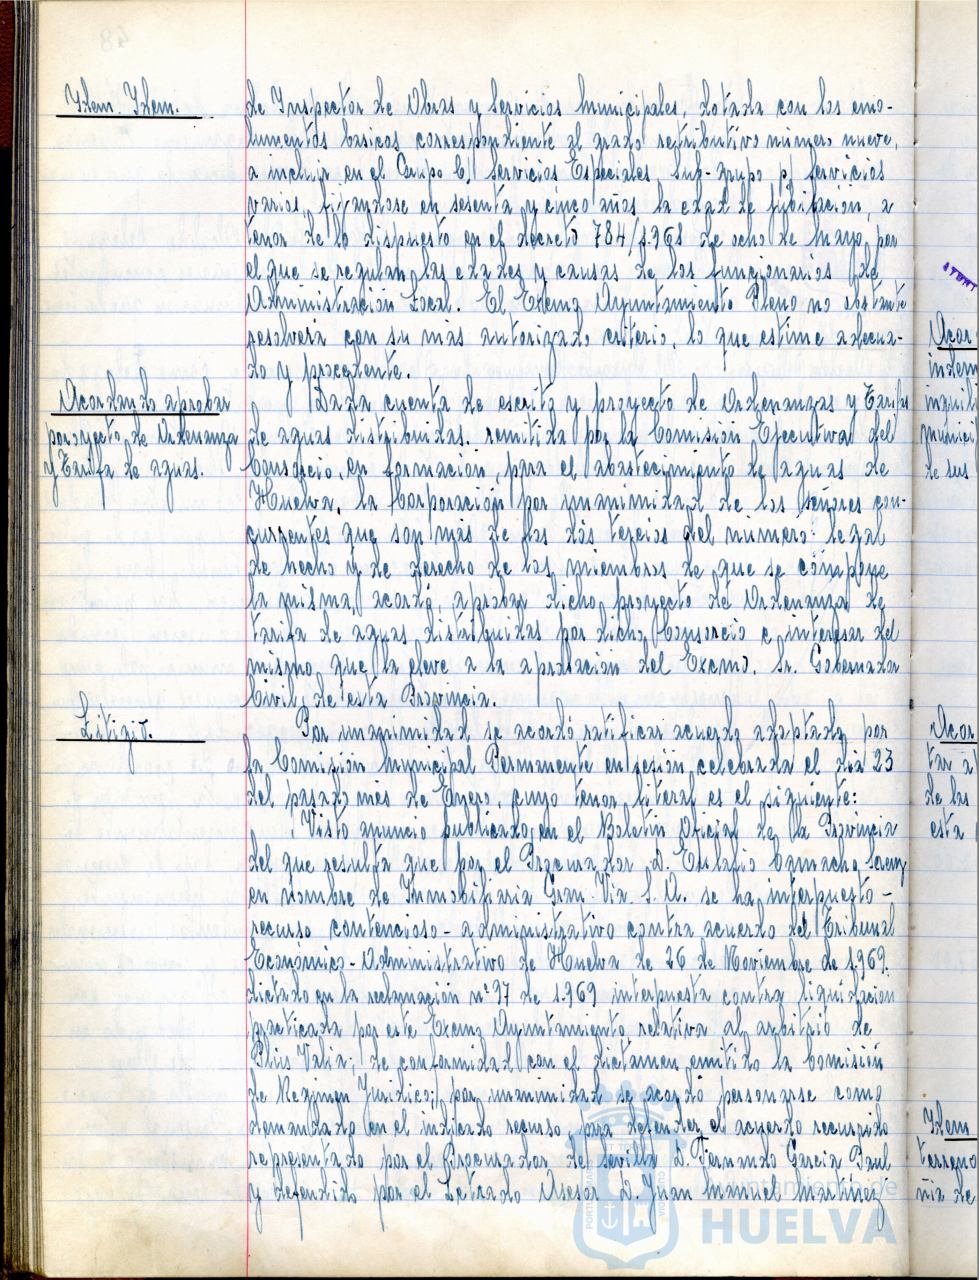 Idem. Idem.
de Inspector de Obras y Servicios Municipales, dotada con los emo-
lumentos basicos correspondiente al grado retributivo número nueve,
a incluir en el Grupo C) Servicios Especiales, Sub-grupo p) Servicios
varios, fijandose en sesenta y cinco años la edad de jubilación, a
tenor de lo dispuesto en el decreto 784/1.968 de ocho de Mayo, por
el que se regulan las edades y causas de los funcionarios de
Administración Local. El Excmo Ayuntamiento Pleno no obstante
resolverá con su más autorizado criterio, lo que estime adecua-
do y procedente.
Acordando aprobar
proyecto de Ordenanza
y Tarifa de aguas.
Dada cuenta de escrito y proyecto de Ordenanzas y Tarifas
de aguas distribuidas remitida por la Comisión Ejecutiva del
Consorcio, en formación, para el abastecimiento de aguas de
Huelva, la Corporación por unanimidad de los señores con-
currentes que son más de los dos tercios del número legal
de hecho y de derecho de los miembros de que se compone
la misma, acordó, aprobar dicho proyecto de Ordenanza de
tarifa de aguas distribuidas por dicho Consorcio e interesar del
mismo que la eleve a la aprobación del Excmo. Sr. Gobernador
Civil de esta Provincia.
Litigio.
Por unanimidad se acordó ratificar acuerdo adoptado por
la Comisión Municipal Permanente en sesión celebrada el día 23
del pasado mes de Enero, cuyo tenor literal es el siguiente:
Visto anuncio publicado en el Boletin Oficial de la Provincia
del que resulta que por el Procurador D. Eulalio Camacho Saenz
en nombre de Inmobiliaria Gran Via S.A. se ha interpuesto -
recurso contencioso - administrativo contra acuerdo del Tribunal
Económico - Administrativo de Huelva de 26 de Noviembre de 1.969.
dictado en la reclamación nº 97 de 1.969 interpuesta contra liquidación
practicada por este Excmo Ayuntamiento relativa al arbitrio de
Plus Valia, de conformidad con el dictamen emitido la Comisión
de Regimen Juridico, por unanimidad se acordó personarse como
demandado en el indicado recurso para defender el acuerdo recurrido
representado por el Procurador de Sevilla D. Fernando Garcia Paul
y defendido por el Letrado Asesor D. Juan Manuel Martinez
Acor
indem
inquili
municí
de sus
Acor
tar a
de las
esta a
Idem
terreno
nia de
Ayuntamiento de
HUELVA